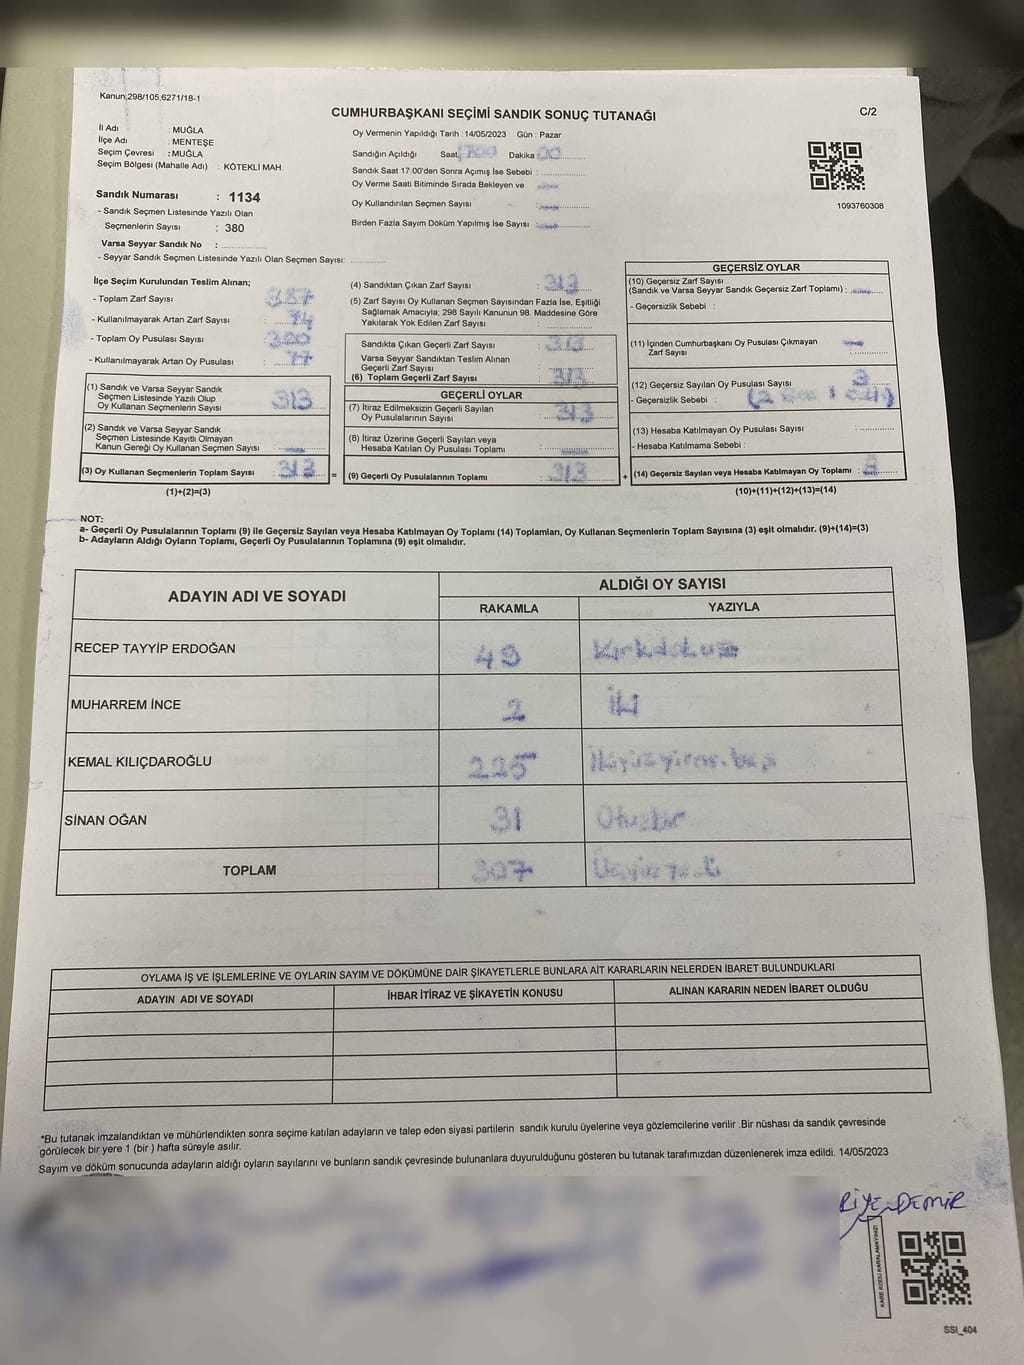 Kanun;298/105,6271/18-1
CUMHURBAŞKANI SEÇİMİ SANDIK SONUÇ TUTANAĞI
C/2
İl Adı : MUĞLA
İlçe Adı : MENTEŞE
Seçim Çevresi : MUĞLA
Seçim Bölgesi (Mahalle Adı) : KÖTEKLİ MAH.
Sandık Numarası : 1134
- Sandık Seçmen Listesinde Yazılı Olan
Seçmenlerin Sayısı : 380
Varsa Seyyar Sandık No :
- Seyyar Sandık Seçmen Listesinde Yazılı Olan Seçmen Sayısı:
Oy Vermenin Yapıldığı Tarih : 14/05/2023 Gün : Pazar
Sandığın Açıldığı Saat: 1700 Dakika: 00
Sandık Saat 17:00'den Sonra Açımış İse Sebebi :
Oy Verme Saati Bitiminde Sırada Bekleyen ve
Oy Kullandırılan Seçmen Sayısı :
Birden Fazla Sayım Döküm Yapılmış İse Sayısı :
1093760308
İlçe Seçim Kurulundan Teslim Alınan;
- Toplam Zarf Sayısı : 387
- Kullanılmayarak Artan Zarf Sayısı : 74
- Toplam Oy Pusulası Sayısı :
- Kullanılmayarak Artan Oy Pusulası : 77
(1) Sandık ve Varsa Seyyar Sandık
Seçmen Listesinde Yazılı Olup
Oy Kullanan Seçmenlerin Sayısı : 313
(2) Sandık ve Varsa Seyyar Sandık
Seçmen Listesinde Kayıtlı Olmayan
Kanun Gereği Oy Kullanan Seçmen Sayısı :
(3) Oy Kullanan Seçmenlerin Toplam Sayısı : 313 =
(1)+(2)=(3)
(4) Sandıktan Çıkan Zarf Sayısı : 313
(5) Zarf Sayısı Oy Kullanan Seçmen Sayısından Fazla İse, Eşitliği
Sağlamak Amacıyla; 298 Sayılı Kanunun 98. Maddesine Göre
Yakılarak Yok Edilen Zarf Sayısı :
Sandıkta Çıkan Geçerli Zarf Sayısı : 313
Varsa Seyyar Sandıktan Teslim Alınan
Geçerli Zarf Sayısı :
(6) Toplam Geçerli Zarf Sayısı : 313
GEÇERLİ OYLAR
(7) İtiraz Edilmeksizin Geçerli Sayılan
Oy Pusulalarının Sayısı : 313
(8) İtiraz Üzerine Geçerli Sayılan veya
Hesaba Katılan Oy Pusulası Toplamı :
(9) Geçerli Oy Pusulalarının Toplamı : 313 +
GEÇERSİZ OYLAR
(10) Geçersiz Zarf Sayısı
(Sandık ve Varsa Seyyar Sandık Geçersiz Zarf Toplamı) :
- Geçersizlik Sebebi :
(11) İçinden Cumhurbaşkanı Oy Pusulası Çıkmayan
Zarf Sayısı :
(12) Geçersiz Sayılan Oy Pusulası Sayısı : 3
- Geçersizlik Sebebi :
(13) Hesaba Katılmayan Oy Pusulası Sayısı :
- Hesaba Katılmama Sebebi :
(14) Geçersiz Sayılan veya Hesaba Katılmayan Oy Toplamı : 3
(10)+(11)+(12)+(13)=(14)
NOT:
a- Geçerli Oy Pusulalarının Toplamı (9) ile Geçersiz Sayılan veya Hesaba Katılmayan Oy Toplamı (14) Toplamları, Oy Kullanan Seçmenlerin Toplam Sayısına (3) eşit olmalıdır. (9)+(14)=(3)
b- Adayların Aldığı Oyların Toplamı, Geçerli Oy Pusulalarının Toplamına (9) eşit olmalıdır.
ADAYIN ADI VE SOYADI ALDIĞI OY SAYISI
RAKAMLA YAZIYLA
RECEP TAYYİP ERDOĞAN 49 Kırkdokuz
MUHARREM İNCE 2 İki
KEMAL KILIÇDAROĞLU 225 İkiyüzyirmi.beş
SİNAN OĞAN 31 Otuzbir
TOPLAM 307 Üçyüz yedi
OYLAMA İŞ VE İŞLEMLERİNE VE OYLARIN SAYIM VE DÖKÜMÜNE DAİR ŞİKAYETLERLE BUNLARA AİT KARARLARIN NELERDEN İBARET BULUNDUKLARI
ADAYIN ADI VE SOYADI İHBAR İTİRAZ VE ŞİKAYETİN KONUSU ALINAN KARARIN NEDEN İBARET OLDUĞU
*Bu tutanak imzalandıktan ve mühürlendikten sonra seçime katılan adayların ve talep eden siyasi partilerin sandık kurulu üyelerine veya gözlemcilerine verilir .Bir nüshası da sandık çevresinde
görülecek bir yere 1 (bir ) hafta süreyle asılır.
Sayım ve döküm sonucunda adayların aldığı oyların sayılarını ve bunların sandık çevresinde bulunanlara duyurulduğunu gösteren bu tutanak tarafımızdan düzenlenerek imza edildi. 14/05/2023
DEMİR
KARE KODU KARALAMAYINIZ!
SSI_404